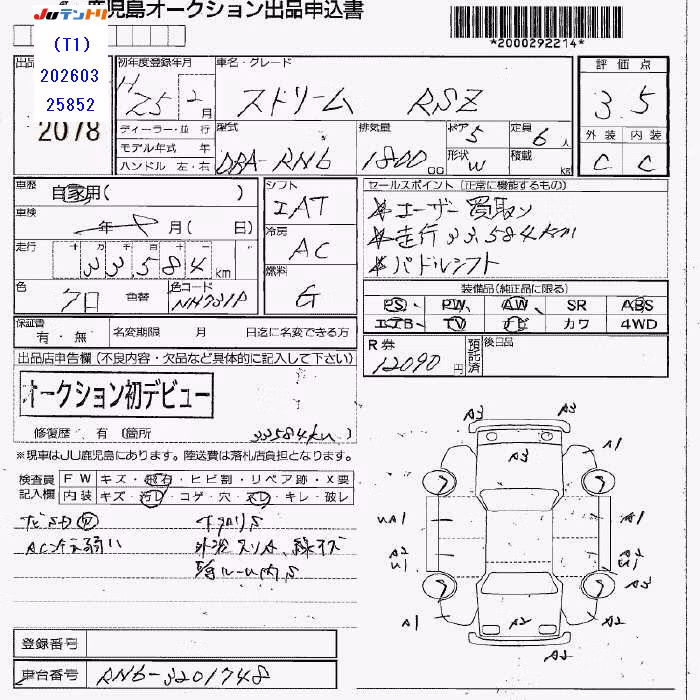 JUテントリ 鹿児島オークション出品申込書
*2000292214*
(T1)
202603
25852
出品
2078
初年度登録年月
H25 2月
車名・グレード
ストリーム RSZ
評価点
3.5
外装 内装
C C
ディーラー・並行
モデル年式 年
ハンドル 左・右
型式
DBA-RN6
排気量
1800
ドア 5
定員 6人
形状 W
積載 kg
車歴
自家用( )
車検
年 月( 日)
走行
十 万 千 百 十 一
33,584 km
色
クロ
色替
色コード
NH731P
シフト
IAT
冷房
AC
燃料
G
セールスポイント(正常に機能するもの)
★ユーザー買取り
★走行33,584km
★パドルシフト
装備品(純正品に限る)
PS・ PW・ AW・ SR ABS
エアB・ TV ナビ・ カワ 4WD
保証書
有・無
名変期限 月 日迄に名変できる方
R券
12090円
預託済
後日品
出品店申告欄(不良内容・欠品など具体的に記入して下さい)
オークション初デビュー
修復歴 有(箇所 33584km)
※現車はJU鹿児島にあります。陸送費は落札店負担となります。
検査員
記入欄
FW キズ・飛石・ヒビ割・リペア跡・X要
内装 キズ・汚レ・コゲ・穴・スレ・キレ・破レ
ACガス弱い
外装スリキズ、線キズ
A3 A3
A3
A1
UA1 A1
A2 A2
U1 U1
A3
A1 A2 A1
A2
登録番号
車台番号 RN6-3201748